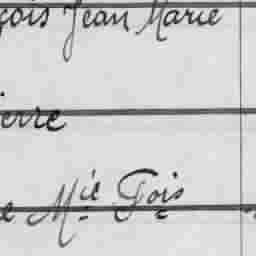 çois Jean Marie
ierre
e Mie Fois